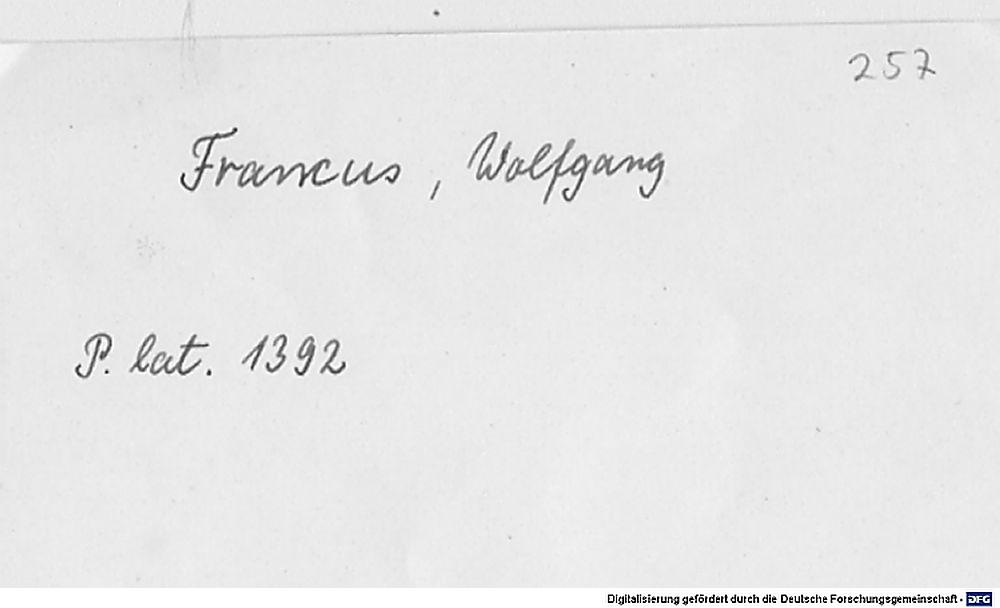 257
Francus, Wolfgang
P. lat. 1392
Digitalisierung gefördert durch die Deutsche Forschungsgemeinschaft - DFG